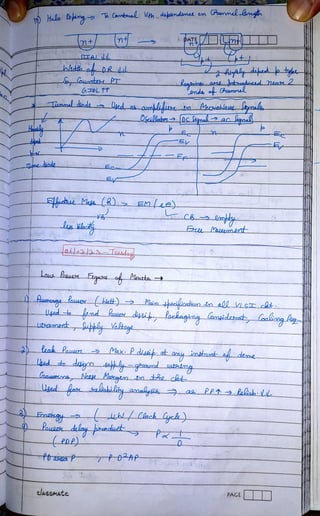 11) Halo Doping → To Control Vth dependence on Channel length
DATE
n+ n+ → n+ n+
p+ p+
GIDL ↓↓
Width of DR ↓↓
So, Counter PT
GIDL ↑↑
2 highly doped p type
Regions are Introduced near 2
ends of Channel
* Tunnel diode → Used as amplifiers in Microwave Signals
Oscillators → DC Signal → ac Signal
n p n p
Ec
Ev
EF
Ec
Ev
Ec
Ev
Effective Mass (h) > EM (e⊖)
VB CB → Empty
less Velocity Free Movement
Low Power Figure of Merits →
1) Average Power (Watt) → Main Specification in all VLSI ckt.
Used to find Power dissip, Packaging Considerat, Cooling Req-
uirement, Supply Voltage
2) Peak Power → Max. P dissip at any instant of time
Used to design supply-ground wiring
Noise Margin in the ckt.
Used for reliability analysis → as PP↑ → Reliab ↓↓
3) Energy → ( uW / Clock Cycle)
Power delay product → P ∝ 1/D
(PDP)
classmate
PAGE